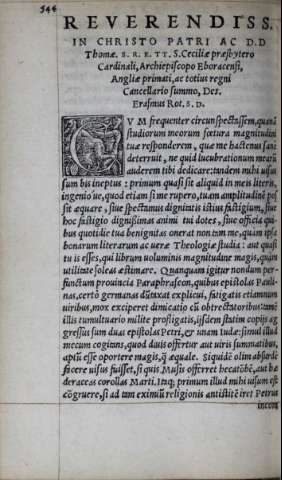 544
REVERENDISS.
IN CHRISTO PATRI AC D.D
Thomæ. S. R. E. TT. S. Ceciliæ præsbytero
Cardinali, Archiepiscopo Eboracensi,
Angliæ primati, ac totius regni
Cancellario summo, Des.
Erasmus Rot. S. D.
CVM frequenter circunspectassem, quànã
studiorum meorum fœtura magnitudini
tuæ responderem, quæ me hactenus sanè
deterruit, ne quid lucubrationum mearũ
auderem tibi dedicare: tandem mihi uisus
sum bis ineptus: primum quasi sit aliquid in meis literis,
ingenio'ue, quod etiam si me rupero, tuam amplitudinẽ pos
sit æquare, siue spectemus dignitatis istius fastigium, siue
hoc fastigio dignißimas animi tui dotes, siue officia qui-
bus quotidie tua benignitas onerat non tem me, quàm ipsa
bonarum literarum ac ueræ Theologiæ studia: aut quasi
tu is esses, qui librum uoluminis magnitudine magis, quàm
utilitate soleas æstimare. Quanquam igitur nondum per-
functum prouincia Paraphraseon, quibus epistolas Pauli-
nas, certò germanas dũtaxat explicui, fatigatis etiamnum
uiribus, mox exciperet dimicatio cũ obtrectatoribus: tamẽ
illis tumultuario milite profligatis, ijsdem statim copijs ag
gressus sum duas epistolas Petri, & unam Iudæ: simul illud
mecum cogitans, quod diuis offertur aut uiris summatibus,
aptũ esse oportere magis, q̃ æquale. Siquidẽ olim absurdè
facere uisus fuisset, si quis Musis offerret hecatõbẽ, aut hæ
deraceas corollas Marti. Itaq; primum illud mihi uisum est
cõgruere, si ad tam eximiũ religionis antistitẽ iret Petrus